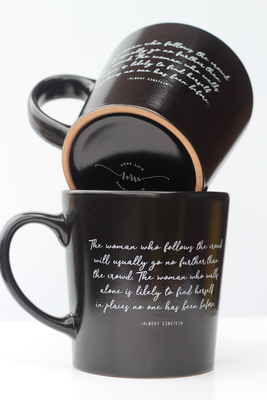 The woman who follows the crowd
will usually go no further than
the crowd. The woman who walks
is likely to find herself
no one has been before.
-ALBERT EINSTEIN
The woman who follows the crowd
will usually go no further than
the crowd. The woman who walks
alone is likely to find herself
in places no one has been before.
-ALBERT EINSTEIN